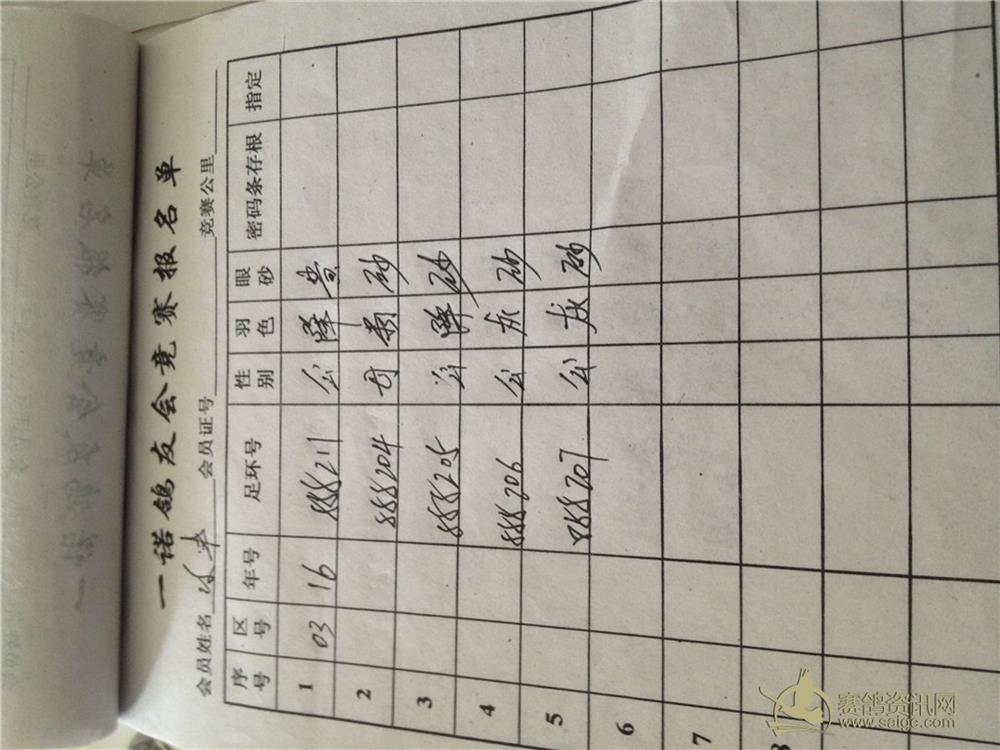 一诺鸽友会竞赛报名单
会员姓名 会员证号 竞赛公里
序号 区号 年号 足环号 性别 羽色 眼砂 密码条存根 指定
1 03 16 888211 公 绛 黄
2 888204 砂
3 888205 绛 砂
4 888206 公 灰 砂
5 888207 公 灰 砂
6
7
8
赛鸽资讯网
www.saige.com